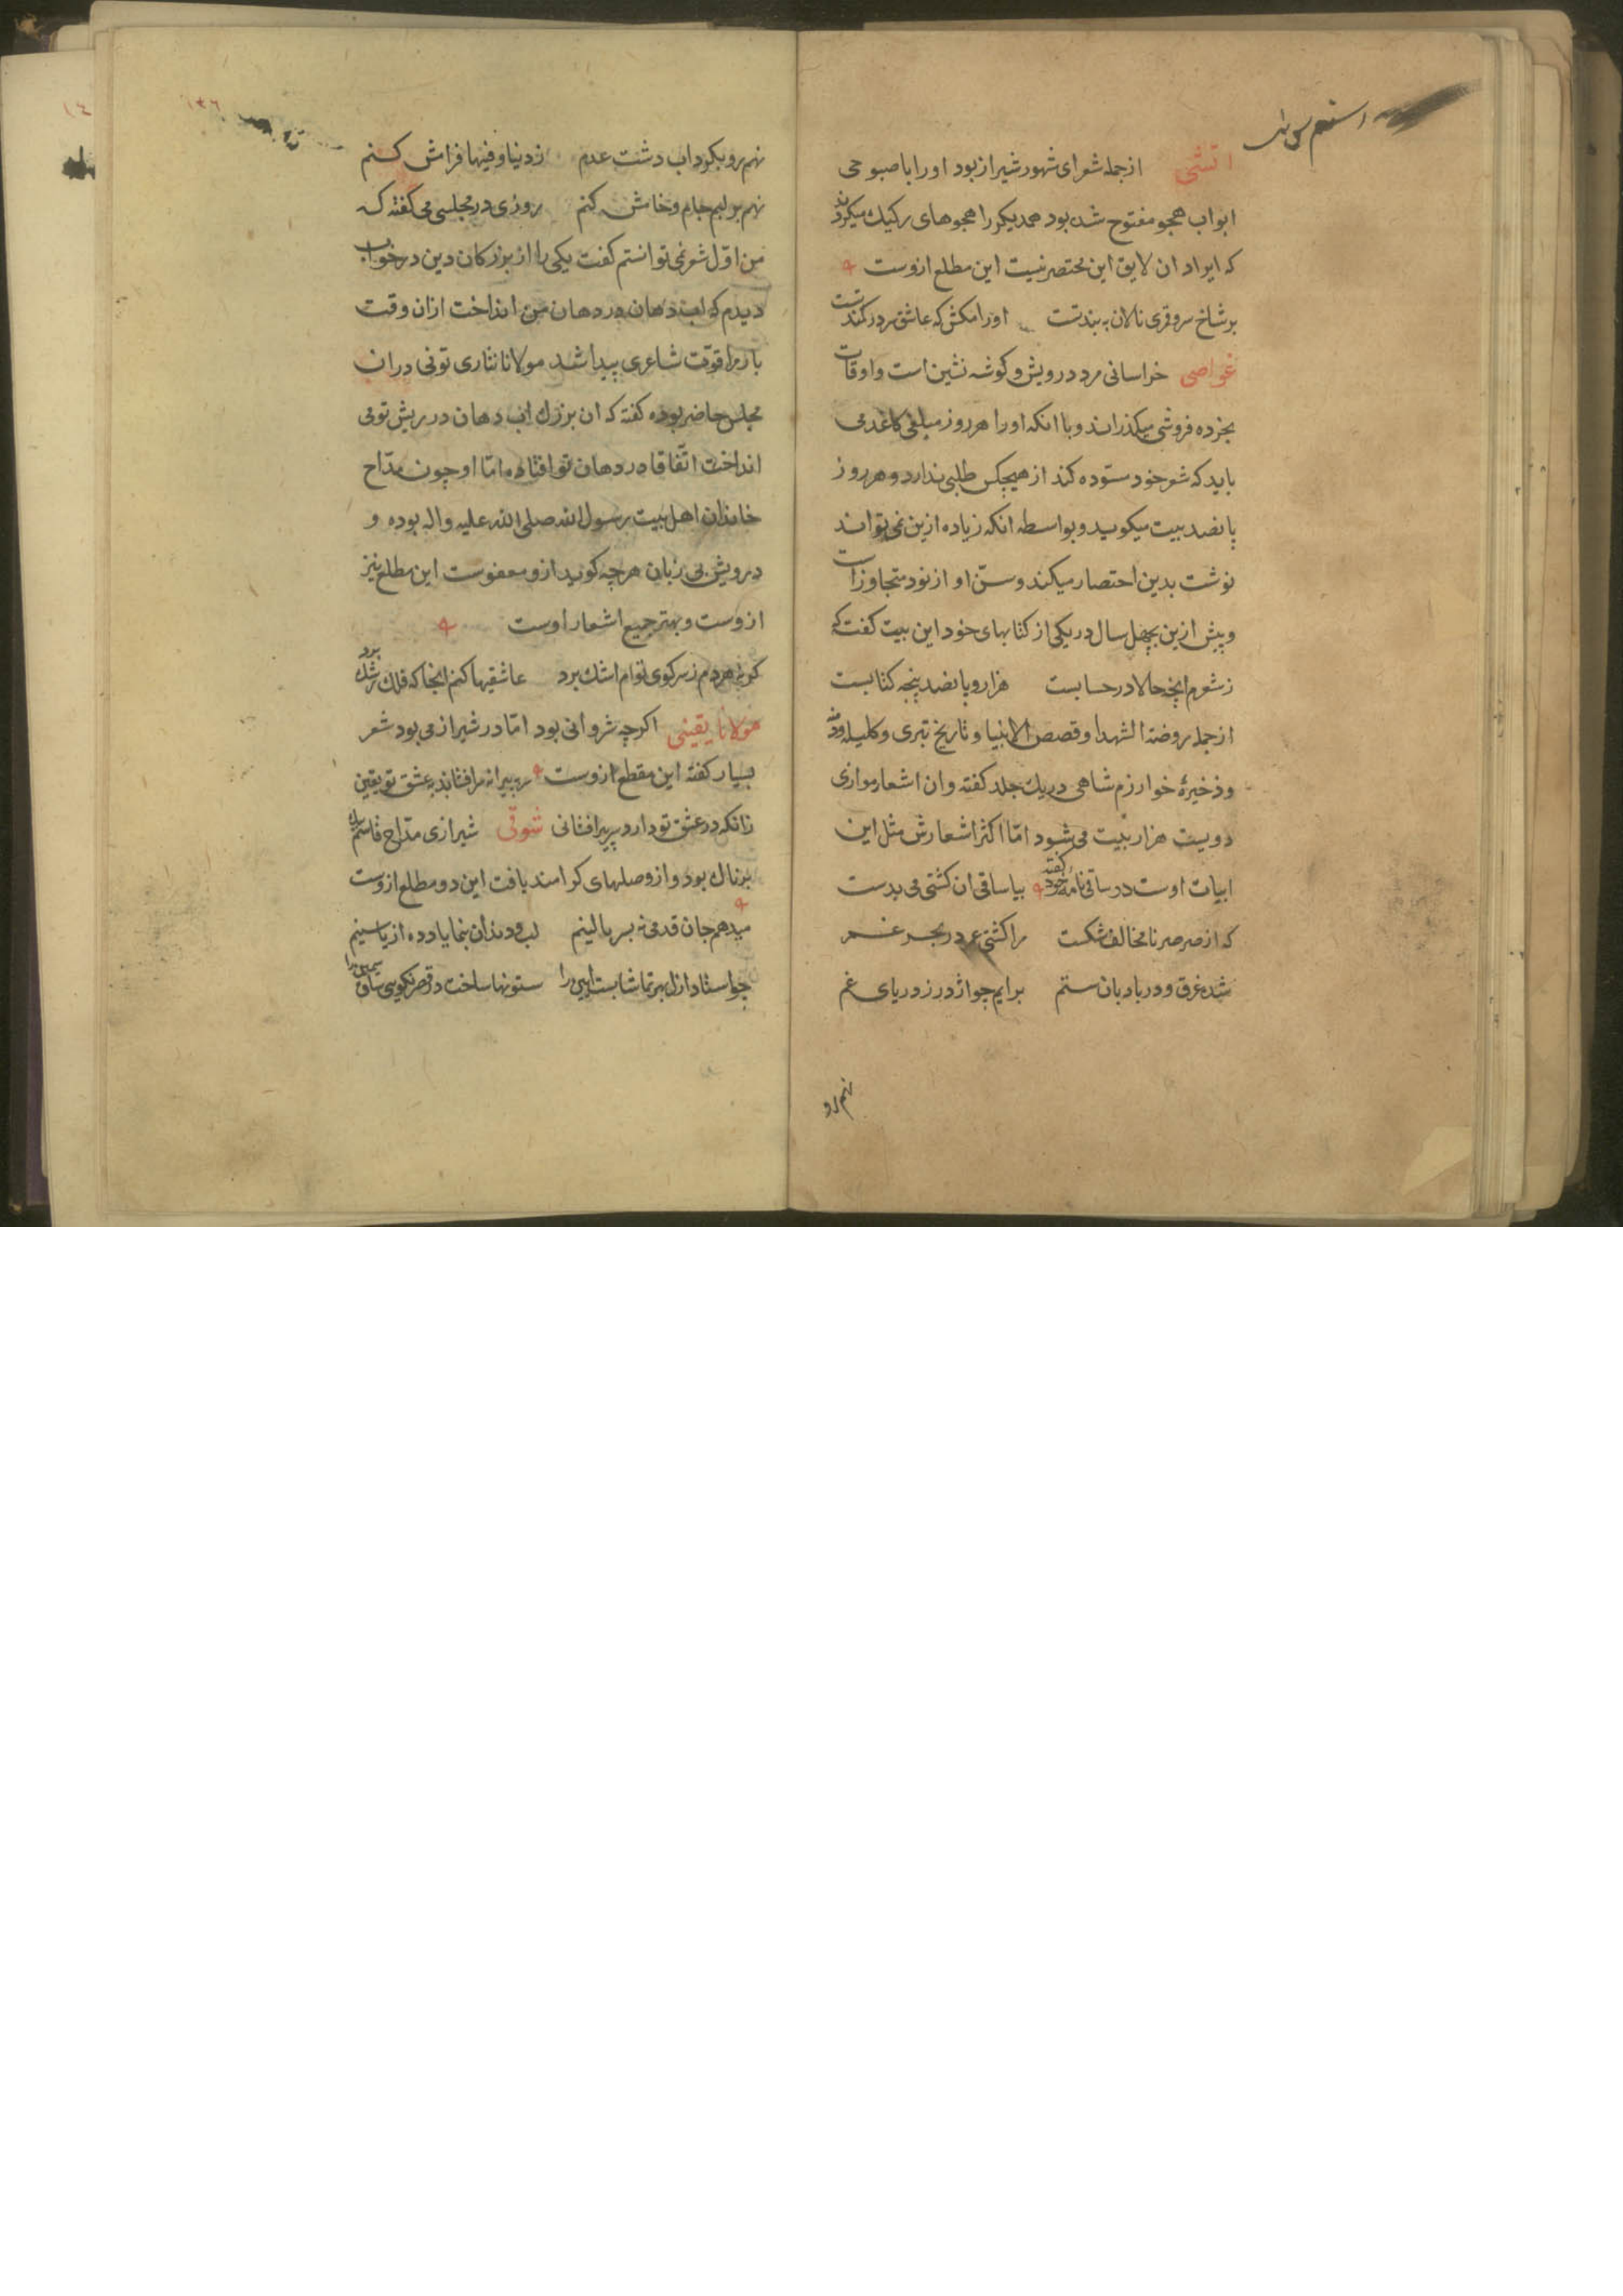 اتشی از جمله شعرای شهور شیراز بود اورا با صبوحی
ابواب هجو مفتوح شده بود همدیکر را هجوهای رکیک میکردند
که ایراد ان لایق این مختصر نیست این مطلع ازوست
بر شاخ سرو قمری نالان به بند تست اورا مکش که عاشق سر در کمند تست
غواصی خراسانی مرد درویش و کوشه نشین است و اوقات
بخرده فروشی میکذراند و با انکه اورا هر روز مبلغی کاغذ می
باید که شعر خود ستوده کند از هیچکس طلبی ندارد و هر روز
پانصد بیت میکوید و بواسطه انکه زیاده ازین نمی تواند
نوشت بدین احتصار میکند و سن او از نود متجاوز است
و پیش ازین بچهل سال در یکی از کتابهای خود این بیت کفته که
ز شعرم انچه حالا در حسابست هزار و پانصد و پنجه کتابست
از جمله روضة الشهدا و قصص الانبیا و تاریخ تبری و کلیله ودمنه
و ذخیرهٔ خوارزم شاهی در یک جلد کفته و ان اشعار موازی
دویست هزار بیت می شود اما اکثر اشعارش مثل این
ابیات اوست در ساقی نامه خود کفته بیا ساقی ان کشتی می بدست
که از صرصر نامخالف شکست مرا کشتی عمر در بحر غم
شده غرق و در بادبان ستم برایم چو اژدر ز دریای غم
نهم رو
نهم رو بکرداب دشت عدم ز دنیا و فیها فراش کنم
نهم بر لبم جام و خامش کنم روزی در مجلسی می کفته که
من اول شعر نمی توانستم کفت یکی را از بزرکان دین در خواب
دیدم که اب دهان در دهان من انداخت ازان وقت
باز مرا قوت شاعری پیدا شد مولانا نثاری تونی دران
مجلس حاضر بوده کفته که ان بزرک اب دهان در ریش تو می
انداخت اتفاقا در دهان تو افتاده اما او چون مداح
خاندان اهل بیت رسول الله صلی الله علیه واله بوده و
درویش بی زبان هرچه کوید ازو معفوست این مطلع نیز
ازوست و بهتر جمیع اشعار اوست
کر نه هر دم ز سر کوی توام اشک برد عاشقیها کنم انجا که فلک رشک برد
مولانا یقینی اکرچه شروانی بود اما در شیراز می بود شعر
بسیار کفته این مقطع ازوست
زانکه در عشق تو دارد پیر افشانی شوقی شیرازی مداح قاسم بیک
پرناک بود و ازو صلهای کرامند یافت این دو مطلع ازوست
میدهم جان قدمی نه بسر بالینم لب و دندان بنما یا دده از یاسینم
چو استاد ازل بهر تماشا بست ایین را ستونها ساخت در قصر نکویی ساق سیمین را